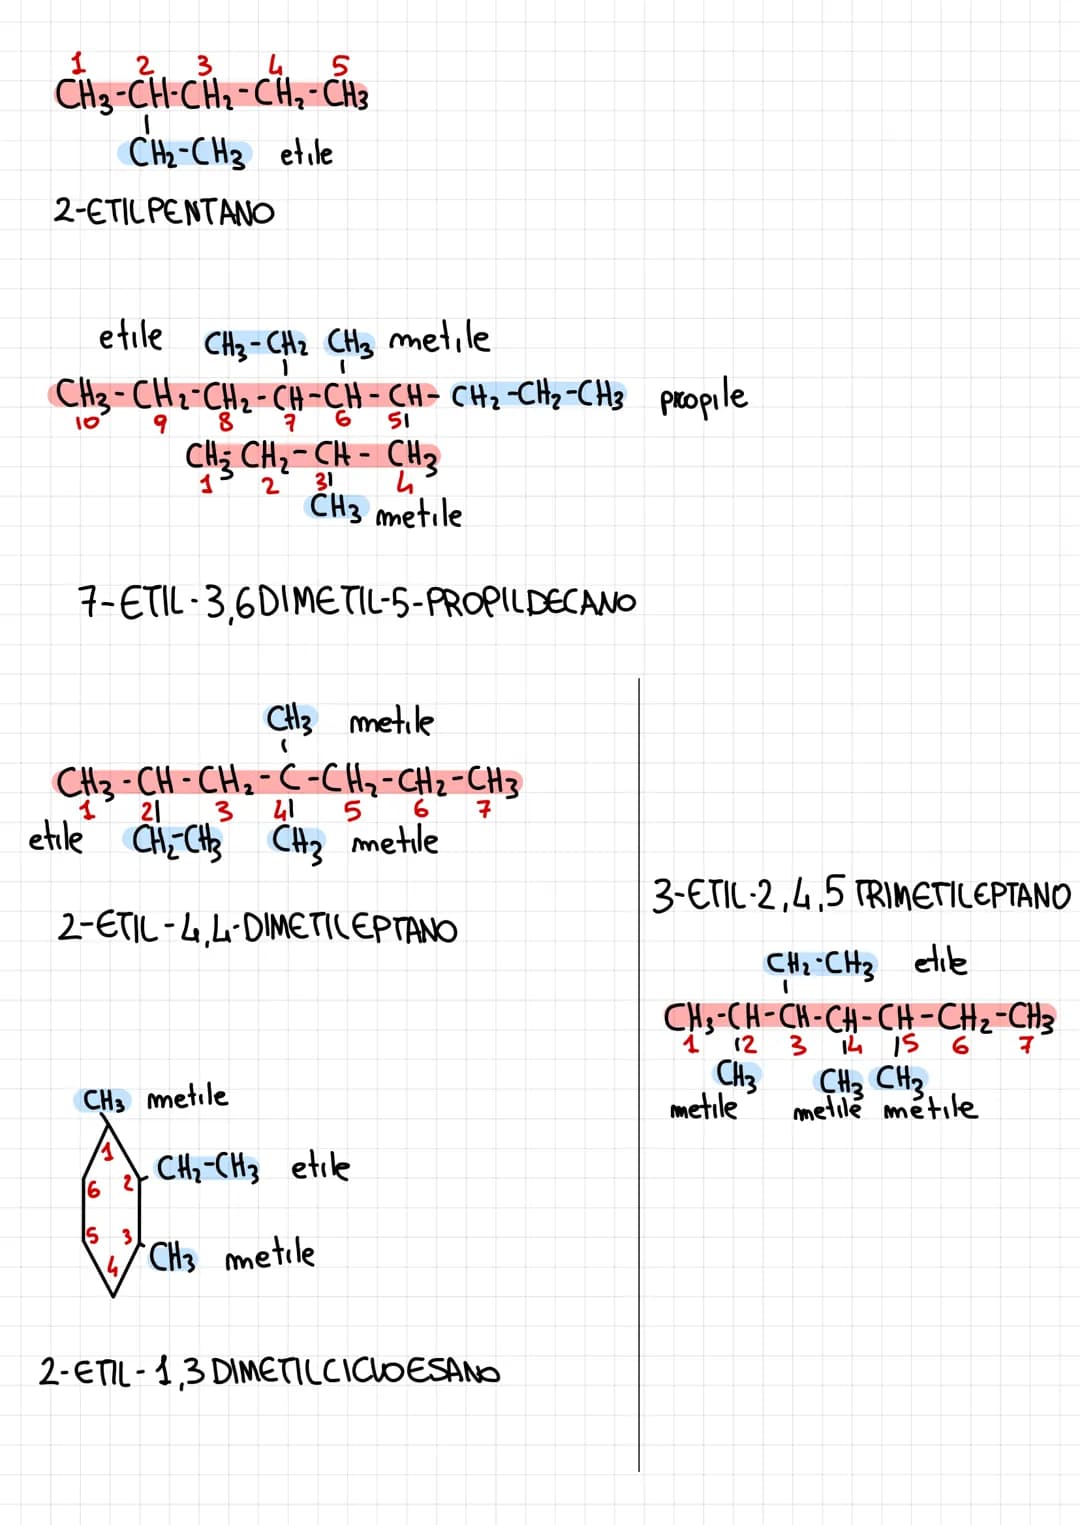 1 2 3 4 5
CH3-CH-CH2-CH2-CH3
CH2-CH3 etile
2-ETILPENTANO
etile CH3-CH2 CH3 metile
CH3-CH2-CH2-CH-CH-CH-CH2-CH2-CH3 propile
10 9 8 7 6 5
CH3 CH2-CH-CH3
1 2 3 4
CH3 metile
7-ETIL-3,6DIMETIL-5-PROPILDECANO
CH3 metile
CH3-CH-CH2-C-CH2-CH2-CH3
1 2 3 4 5 6 7
etile CH2-CH3 CH3 metile
2-ETIL-4,4-DIMETILEPTANO
CH3 metile
1
CH2-CH3 etile
6 2
5 3
4
CH3 metile
2-ETIL-1,3 DIMETILCICLOESANO
3-ETIL-2,4,5 TRIMETILEPTANO
CH2-CH3 etile
CH3-CH-CH-CH-CH-CH2-CH3
1 2 3 4 5 6 7
CH3 CH3 CH3
metile metile metile